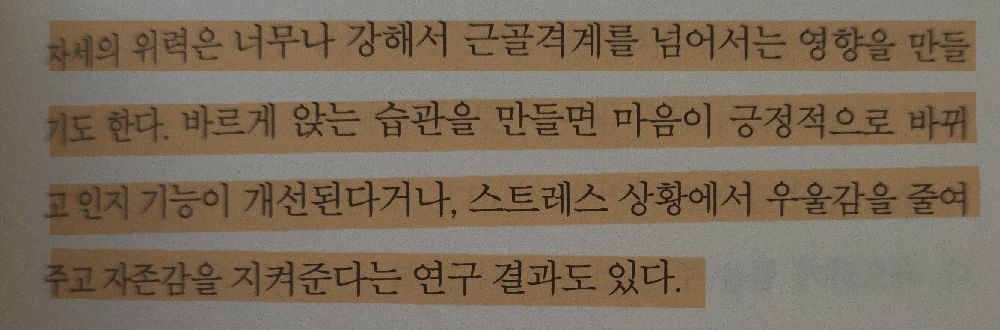 자세의 위력은 너무나 강해서 근골격계를 넘어서는 영향을 만들
기도 한다. 바르게 앉는 습관을 만들면 마음이 긍정적으로 바뀌
고 인지 기능이 개선된다거나, 스트레스 상황에서 우울감을 줄여
주고 자존감을 지켜준다는 연구 결과도 있다.